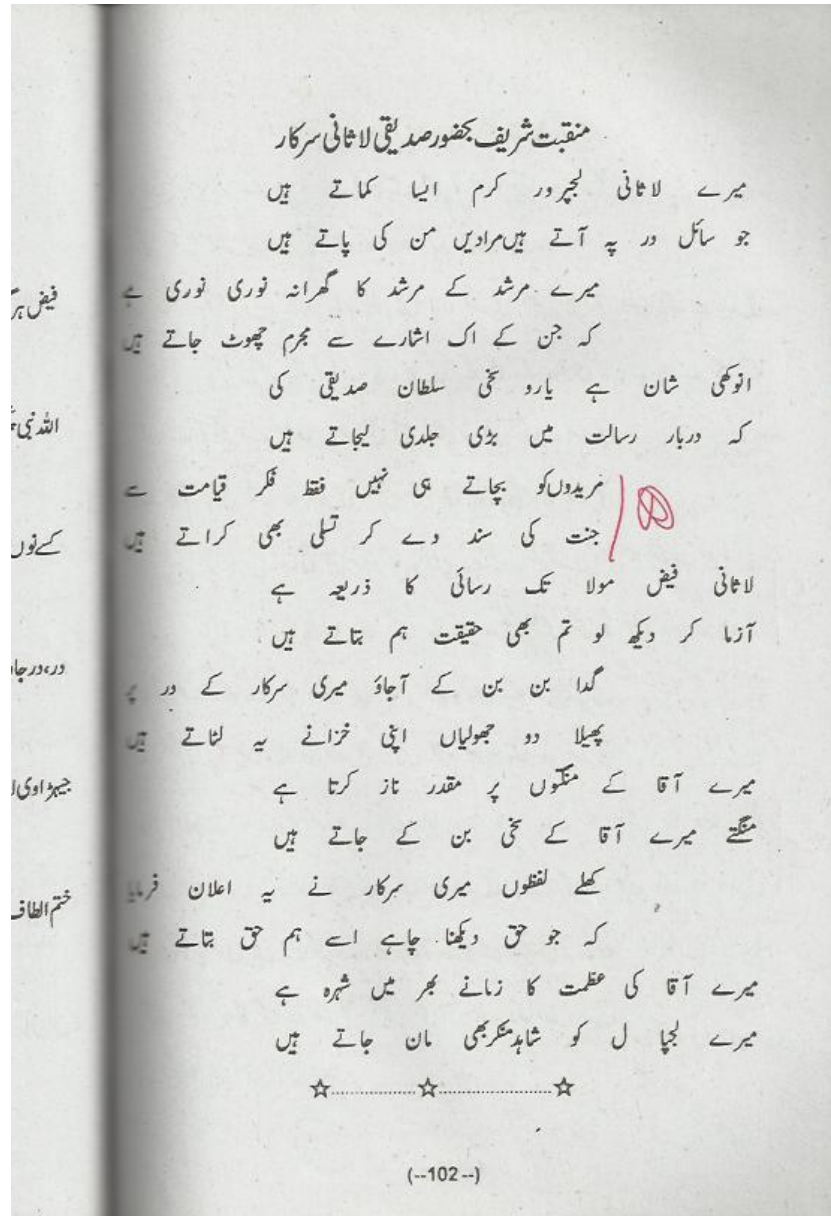 منقبت شریف بحضور صدیقی لا ثانی سرکار
میرے لاثانی لجپرور کرم ایسا کماتے ہیں
جو سائل در پہ آتے ہیں مرادیں من کی پاتے ہیں
میرے مرشد کے مرشد کا گھرانہ نوری نوری ہے
کہ جن کے اک اشارے سے مجرم چھوٹ جاتے ہیں
انوکھی شان ہے یارو سخی سلطان صدیقی کی
کہ دربار رسالت میں بڑی جلدی لیجاتے ہیں
مریدوں کو بچاتے ہی نہیں فقط فکر قیامت سے
جنت کی سند دے کر تسلی بھی کراتے ہیں
لاثانی فیض مولا تک رسائی کا ذریعہ ہے
آزما کر دیکھ لو تم بھی حقیقت ہم بتاتے ہیں
گدا بن بن کے آجاؤ میری سرکار کے در پر
پھیلا دو جھولیاں اپنی خزانے یہ لٹاتے ہیں
میرے آقا کے منگتوں پر مقدر ناز کرتا ہے
منگتے میرے آقا کے سخی بن کے جاتے ہیں
کھلے لفظوں میری سرکار نے یہ اعلان فرمایا
کہ جو حق دیکھنا چاہے اسے ہم حق بتاتے ہیں
میرے آقا کی عظمت کا زمانے بھر میں شہرہ ہے
میرے لجپا ل کو شاہد منکر بھی مان جاتے ہیں
(--102--)
فیض ہر
اللہ نبی
کے نوں
در، در جا
جیہڑا وی
ختم الطاف